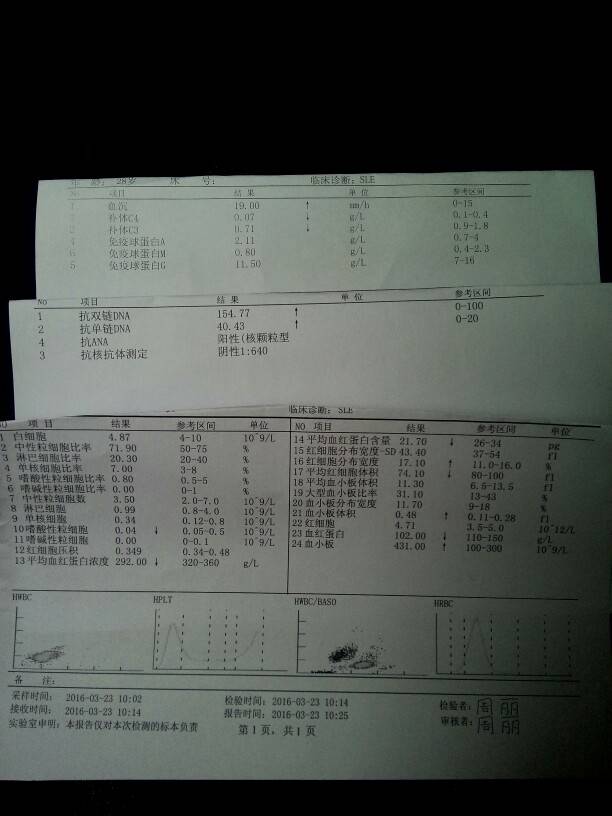 年 龄: 28岁 床 号: 临床诊断: SLE
No 项目 结 果 单 位 参考区间
1 血沉 19.00 ↑ mm/h 0-15
补体C4 0.07 ↓ g/L 0.1-0.4
2 补体C3 0.71 ↓ g/L 0.9-1.8
4 免疫球蛋白A 2.11 g/L 0.7-4
6 免疫球蛋白M 0.80 g/L 0.4-2.3
5 免疫球蛋白G 11.50 g/L 7-16
NO 项目 结 果 单 位 参考区间
1 抗双链DNA 154.77 ↑ 0-100
2 抗单链DNA 40.43 ↑ 0-20
4 抗ANA 阳性(核颗粒型
3 抗核抗体测定 阴性1:640
临床诊断: SLE
NO 项 目 结果 参考区间 单位
1 白细胞 4.87 4-10 10^9/L
2 中性粒细胞比率 71.90 50-75 %
3 淋巴细胞比率 20.30 20-40 %
4 单核细胞比率 7.00 3-8 %
5 嗜酸性粒细胞比率 0.80 0.5-5 %
6 嗜碱性粒细胞比率 0.00 0-1 %
7 中性粒细胞数 3.50 2.0-7.0 10^9/L
8 淋巴细胞 0.99 0.8-4.0 10^9/L
9 单核细胞 0.34 0.12-0.8 10^9/L
10嗜酸性粒细胞 0.04 ↓ 0.05-0.5 10^9/L
11嗜碱性粒细胞 0.00 0-0.1 10^9/L
12红细胞压积 0.349 0.34-0.48
13平均血红蛋白浓度 292.00 ↓ 320-360 g/L
NO 项目 结果 参考区间 单位
14平均血红蛋白含量 21.70 ↓ 26-34 pg
15红细胞分布宽度-SD 43.40 37-54 fl
16红细胞分布宽度 17.10 ↑ 11.0-16.0 %
17平均红细胞体积 74.10 ↓ 80-100 fl
18平均血小板体积 11.30 6.5-13.5 fl
19大型血小板比率 31.10 13-43 %
20血小板分布宽度 11.70 9-18 %
21血小板体积 0.48 ↑ 0.11-0.28 fl
22红细胞 4.71 3.5-5.0 10^12/L
23血红蛋白 102.00 ↓ 110-150 g/L
24血小板 431.00 ↑ 100-300 10^9/L
HWBC HPLT HWBC/BASO HRBC
备 注:
采样时间: 2016-03-23 10:02 检验时间: 2016-03-23 10:14 检验者: 周丽
接收时间: 2016-03-23 10:14 报告时间: 2016-03-23 10:25 审核者: 周丽
实验室申明: 本报告仅对本次检测的标本负责 第1页, 共1页